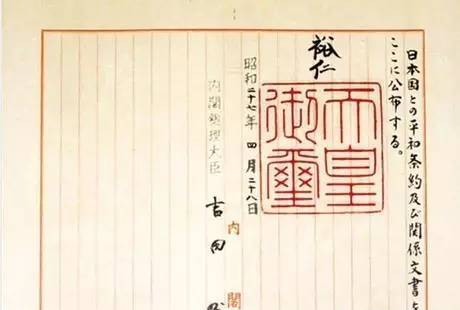 日本国との平和条約及び関係文書を
ここに公布する。
裕仁
天皇
御璽
昭和二十七年 四月二十八日
内閣總理大臣 吉田
内閣